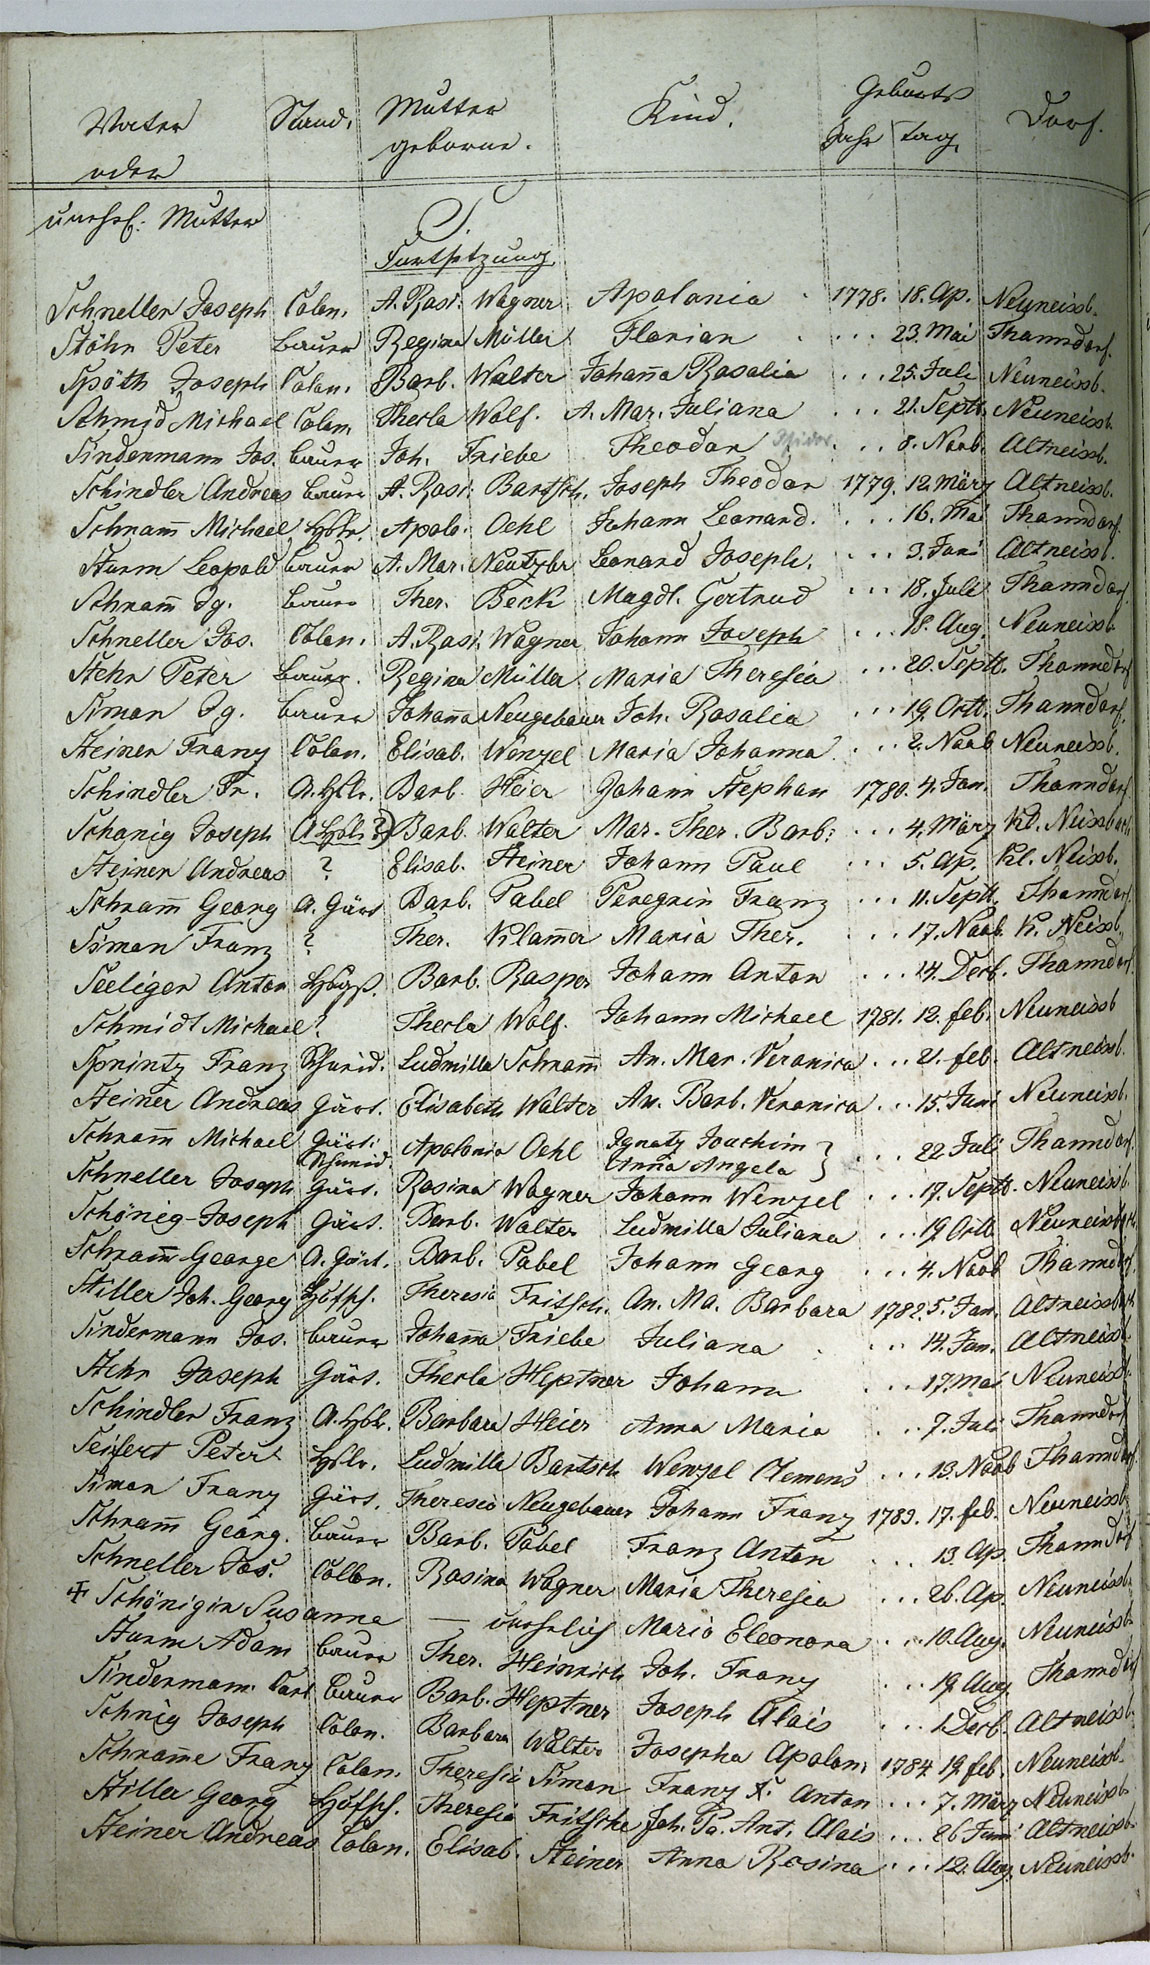 Vater Stand. Mutter Kind. Geburts Dorf.
oder geborne. Jahr tag.
unehel: Mutter
S.
Fortsetzung
Schneller Joseph Colon. A. Rosi. Wagner Apolonia 1778. 18. Ap. Neuneissb.
Stöhr Peter bauer Regina Müller Florian . ... 23. Mai Thanndorf.
Späth Joseph Colon. Barb. Walter Johana Rosalia ... 25. Juli Neuneissb.
Schmid Michael Colon. Thecla Wolf. A. Mar. Juliana ... 21. Sept. Neuneissb.
Sindermann Jos. bauer Joh. Friebe Theodor Isidor ... 8. Novb. Altneissb.
Schindler Andreas bauer A. Rosi: Bartsch. Joseph Theodor 1779. 12. März Altneissb.
Schram Michael Hslr. Apolo. Oehl Johann Leonard. ... 16. Mai Thanndorf.
Sturm Leopold bauer A. Mar. Neutzler Leonard Joseph. ... 3. Juni Altneissb.
Schram Ig. bauer Ther. Beck Magdl. Gertrud ... 18. Juli Thanndorf.
Schneller Jos. Colon. A. Rosi. Wagner Johann Joseph ... 18. Aug. Neuneissb.
Stehr Peter bauer. Regina Müller Maria Theresia ... 20. Sept. Thanndorf
Siman Ig. bauer Johana Neugebauer Joh. Rosalia ... 19. Octb. Thanndorf.
Steiner Franz Colon. Elisab. Wenzel Maria Johanna ... 2. Novb Neuneissb.
Schindler Fr. A. Hslr. Barb. Heier Johann Stephan 1780. 4. Jan. Thanndorf
Schonig Joseph A Hslr ?) Barb. Walter Mar. Ther. Barb: ... 4. März Kl. Neissbach
Steiner Andreas ? Elisab. Steiner Johann Paul ... 5. Ap. Kl. Neissb.
Schram Georg A. Gärt Barb. Pabel Peregrin Franz ... 11. Sept. Thanndorf.
Siman Franz ? Ther. Klamer Maria Ther. ... 17. Novb. K. Neissb.
Seeliger Anton Barb. Rasper Johann Anton ... 14. Decb. Thanndorf.
Schmidt Michael ? Thecla Wolf. Johann Michael 1781. 12. feb. Neuneissb
Sprintz Franz Schmid. Ludmilla Schram An. Mar. Veronica ... 21. feb. Altneissb.
Steiner Andreas Gärt. Elisabeth Walter An. Barb. Veronica ... 15. Juni Neuneissb.
Schram Michael Gärt: Schmid. Apolonia Oehl Ignatz Joachim } ... 22 Juli Thanndorf.
Anna Angela
Schneller Joseph Gärt. Rosina Wagner Johann Wenzel ... 17. Septb. Neuneissb.
Schönig Joseph Gärt. Barb. Walter Ludmilla Juliana ... 19. Octb. Neuneissbach
Schram George A. Gärt. Barb. Pabel Johann Georg ... 4. Novb Thanndorf.
Stiller Joh. Georg Theresia Fritsch. An. Ma. Barbara 1782. 5. Jan. Altneissbach
Sindermann Jos. bauer Johana Friebe Juliana . ... 14. Jan. Altneissb.
Stehr Joseph Gärt. Thecla Heptner Johann ... 17. Mai Neuneissb.
Schindler Franz A. Hslr. Barbara Heier Anna Maria ... 7. Juli Thanndorf
Seifert Peter Hslr. Ludmilla Bartsch Wenzel Clemens ... 13. Novb Thanndorf.
Siman Franz Gärt. Theresia Neugebauer Johann Franz 1783. 17. feb. Neuneissb.
Schram Georg. bauer Barb. Pabel Franz Anton ... 13. Ap. Thanndorf
Schneller Jos. Collon. Rosina Wagner Maria Theresia ... 26. Ap. Neuneissb.
+ Schönigin Susanna — unehelich Maria Eleonora ... 10. Aug. Neuneissb.
Sturm Adam bauer Ther. Heinrich Joh. Franz ... 19. Aug. Thanndorf
Sindermann Carl bauer Barb. Heptner Joseph Alois ... 1. Decb. Altneissb.
Schnig Joseph Colon. Barbara Walter Josepha Apolon. 1784 19. feb. Neuneissb.
Schrame Franz Colon. Theresia Siman Franz X. Anton ... 7. März Neuneissb.
Stiller Georg Theresia Fritsche Joh. Pa. Ant. Alois ... 26 Juni Altneissb.
Steiner Andreas Colon. Elisab. Steiner Anna Rosina ... 12. Aug. Neuneissb.